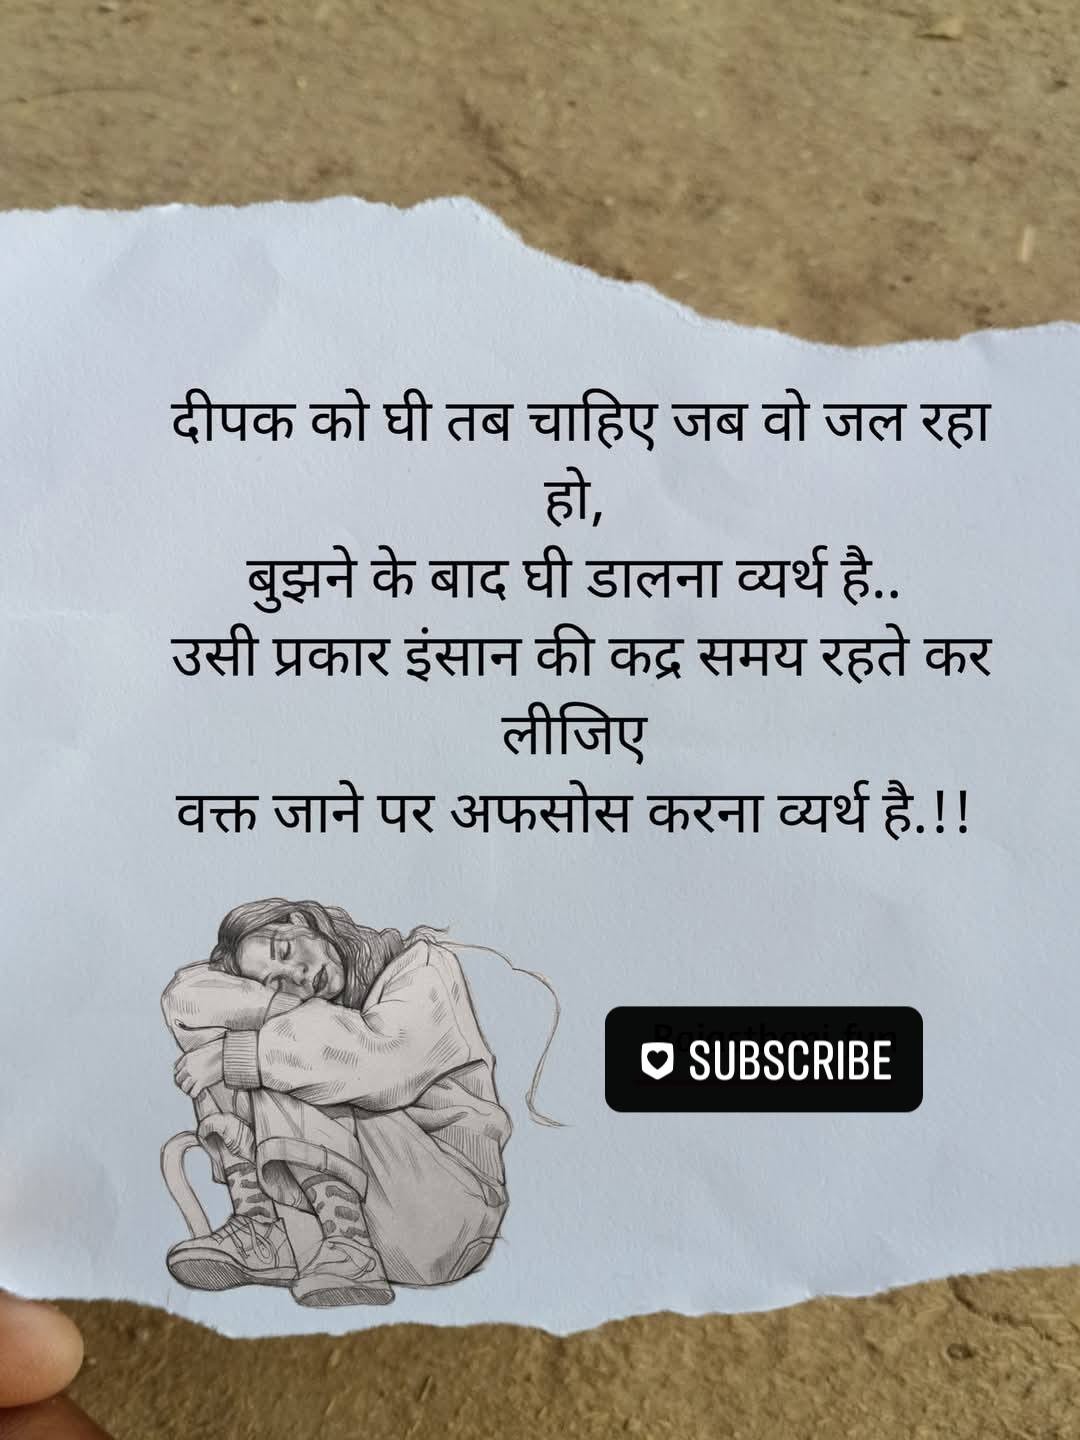 दीपक को घी तब चाहिए जब वो जल रहा
हो,
बुझने के बाद घी डालना व्यर्थ है..
उसी प्रकार इंसान की कद्र समय रहते कर
लीजिए
वक्त जाने पर अफसोस करना व्यर्थ है.!!
Rajasthani fun
SUBSCRIBE